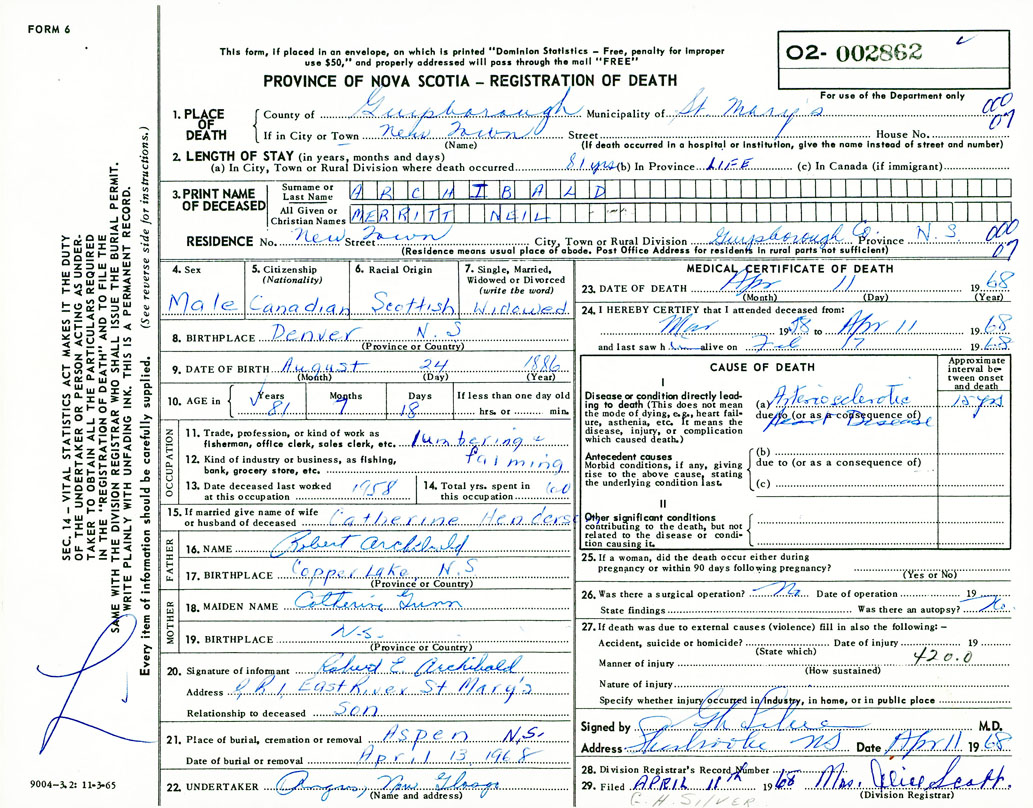 FORM 6
This form, if placed in an envelope, on which is printed "Dominion Statistics – Free, penalty for improper
use $50," and properly addressed will pass through the mail "FREE"
PROVINCE OF NOVA SCOTIA – REGISTRATION OF DEATH
O2- 002862
For use of the Department only
000
07
SEC. 14 – VITAL STATISTICS ACT MAKES IT THE DUTY
OF THE UNDERTAKER OR PERSON ACTING AS UNDER-
TAKER TO OBTAIN ALL THE PARTICULARS REQUIRED
IN THE "REGISTRATION OF DEATH" AND TO FILE THE
SAME WITH THE DIVISION REGISTRAR WHO SHALL ISSUE THE BURIAL PERMIT.
WRITE PLAINLY WITH UNFADING INK. THIS IS A PERMANENT RECORD.
Every item of information should be carefully supplied. (See reverse side for instructions.)
1. PLACE OF DEATH
County of Guysborough Municipality of St Mary's
If in City or Town New Town Street House No.
(Name) (If death occurred in a hospital or institution, give the name instead of street and number)
2. LENGTH OF STAY (in years, months and days)
(a) In City, Town or Rural Division where death occurred 81 yrs (b) In Province LIFE (c) In Canada (if immigrant)
3. PRINT NAME OF DECEASED
Surname or Last Name ARCHIBALD
All Given or Christian Names MERRITT NEIL
RESIDENCE No. New Town Street City, Town or Rural Division Guysborough Co. Province N.S.
(Residence means usual place of abode. Post Office Address for residents in rural parts not sufficient)
000
07
4. Sex Male
5. Citizenship (Nationality) Canadian
6. Racial Origin Scottish
7. Single, Married, Widowed or Divorced (write the word) Widowed
8. BIRTHPLACE Denver N.S
(Province or Country)
9. DATE OF BIRTH August 24 1886
(Month) (Day) (Year)
10. AGE in Years 81 Months 7 Days 18 If less than one day old hrs. or min.
OCCUPATION
11. Trade, profession, or kind of work as
fisherman, office clerk, sales clerk, etc. lumbering &
12. Kind of industry or business, as fishing,
bank, grocery store, etc. farming
13. Date deceased last worked
at this occupation 1958
14. Total yrs. spent in
this occupation 60
15. If married give name of wife
or husband of deceased Catherine Henders
FATHER
16. NAME Robert Archibald
17. BIRTHPLACE Copper Lake N.S
(Province or Country)
MOTHER
18. MAIDEN NAME Catherine Gunn
19. BIRTHPLACE N.S.
(Province or Country)
20. Signature of informant Robert L Archibald
Address R R 1, East River St Mary's
Relationship to deceased Son
21. Place of burial, cremation or removal Aspen N.S.
Date of burial or removal April 13 1968
22. UNDERTAKER New Glasgo
(Name and address)
9004-3.2: 11-3-65
MEDICAL CERTIFICATE OF DEATH
23. DATE OF DEATH Apr 11 1968
(Month) (Day) (Year)
24. I HEREBY CERTIFY that I attended deceased from:
Mar 1958 to Apr 11 1968
and last saw him alive on Feb 17 1968
CAUSE OF DEATH
Approximate interval between onset and death
I
Disease or condition directly lead-
ing to death (This does not mean
the mode of dying, e.g., heart fail-
ure, asthenia, etc. It means the
disease, injury, or complication
which caused death.)
(a) Arteriosclerotic 15 yrs
due to (or as a consequence of)
Heart Disease
Antecedent causes
Morbid conditions, if any, giving
rise to the above cause, stating
the underlying condition last.
(b)
due to (or as a consequence of)
(c)
II
Other significant conditions
contributing to the death, but not
related to the disease or condi-
tion causing it.
25. If a woman, did the death occur either during
pregnancy or within 90 days following pregnancy?
(Yes or No)
26. Was there a surgical operation? No Date of operation 19
State findings Was there an autopsy? No
27. If death was due to external causes (violence) fill in also the following: –
Accident, suicide or homicide? Date of injury 19
(State which) 420.0
Manner of injury
(How sustained)
Nature of injury
Specify whether injury occurred in industry, in home, or in public place
Signed by M.D.
Address Sherbrooke NS Date April 11 1968
28. Division Registrar's Record Number
29. Filed APRIL 11th 1968 Mrs. Alice Scott
(Division Registrar)
G. H. SILVER